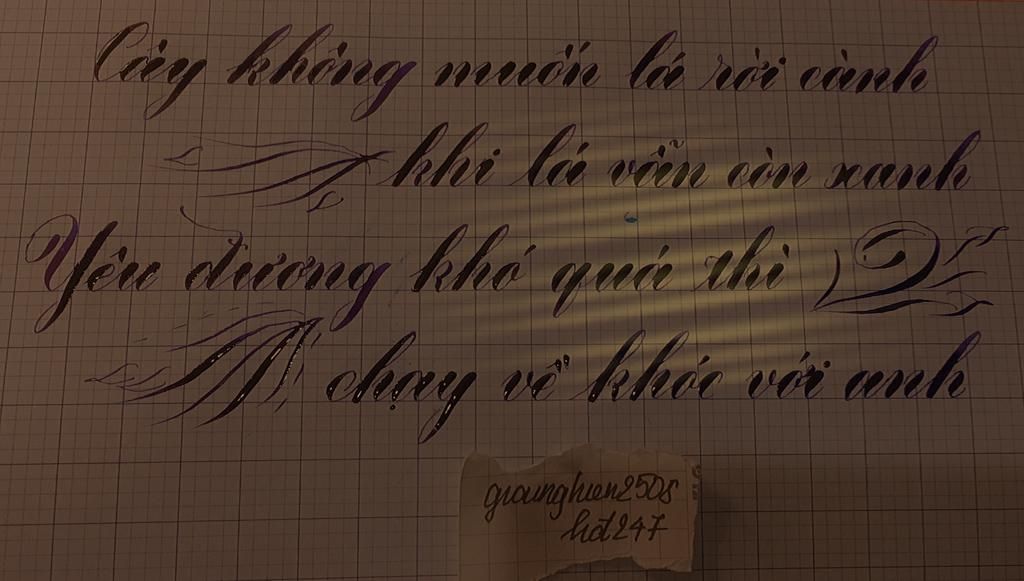 Cây không muốn lá rời cành
khi lá vẫn còn xanh
Yêu đương khó quá thì
chạy về khóc với anh
gianghien2508
hđ247